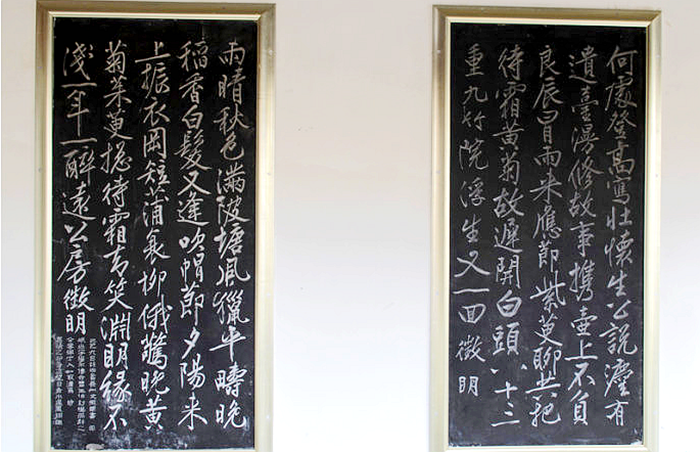 何處登高寫壯懷生公說灋有
遺臺漫修故事携壺上不負
良辰冒雨来應節紫萸聊共把
待霜黄菊故遲開白頭八十三
重九竹院浮生又一回徵明
雨晴秋色滿陂塘風獵平疇晚
稻香白髮又逢吹帽節夕陽来
上振衣岡短蒲衰柳俄驚晚黄
菊茱萸總待霜却笑淵明緣不
淺一年一醉遠公房徵明